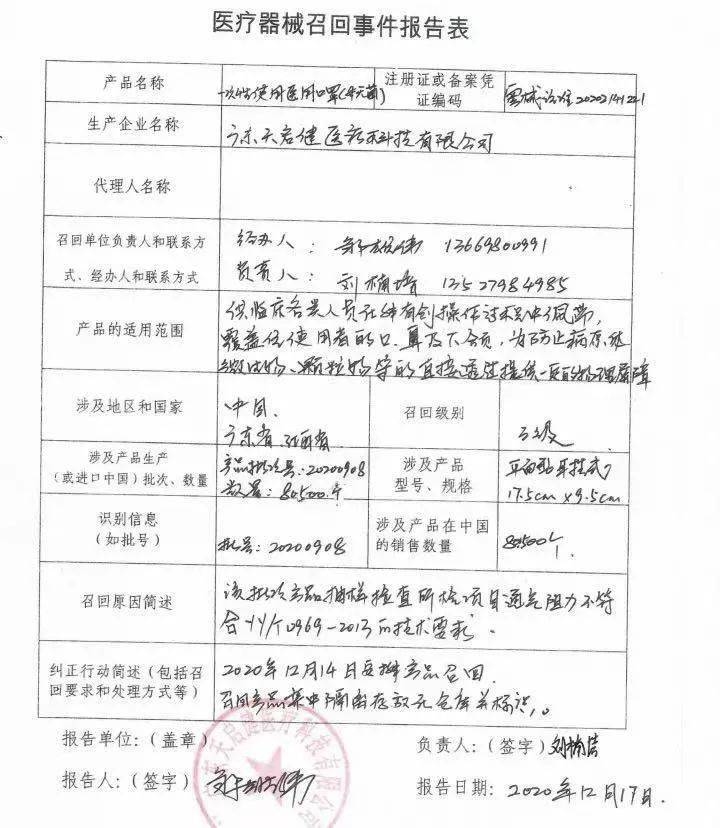 医疗器械召回事件报告表
产品名称
一次性使用医用口罩(非无菌)
注册证或备案凭
证编码
粤械注准20202141221
生产企业名称
广东天启健医疗科技有限公司
代理人名称
召回单位负责人和联系方
式、经办人和联系方式
经办人: 13669800991
负责人: 刘楠 13527984985
产品的适用范围
供临床各类人员在非有创操作过程中佩带,
覆盖住使用者的口、鼻及下颌,为防止病原体
微生物、颗粒物等的直接透过提供一定的物理屏障
涉及地区和国家
中国.
广东省 江西省
召回级别
三级
涉及产品生产
(或进口中国)批次、数量
产品批次号:20200908
数量:80500个
涉及产品
型号、规格
平面型耳挂式
17.5cm×9.5cm
识别信息
(如批号)
批号:20200908
涉及产品在中国
的销售数量
80500个.
召回原因简述
该批次产品抽样检查所检项目通气阻力不符
合YY/T0969-2013的技术要求.
纠正行动简述(包括召
回要求和处理方式等)
2020年12月14日安排产品召回.
召回产品集中隔离存放于仓库并标识。
报告单位:(盖章)
负责人:(签字)刘楠
报告人:(签字)
报告日期:2020年12月17日.